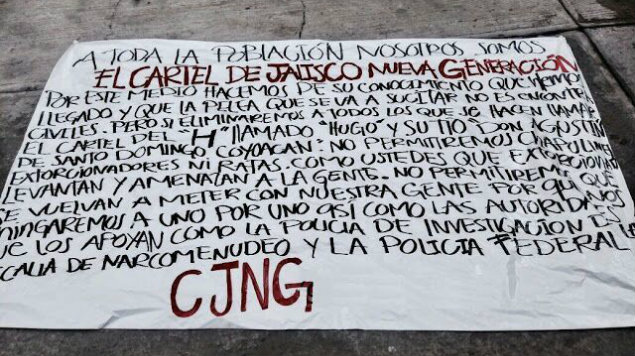 A TODA LA POBLACIÓN NOSOTROS SOMOS
EL CARTEL DE JAISCO NUEVA GENERACIÓN
POR ESTE MEDIO HACEMOS DE SU CONOCIMIENTO QUE HEMOS
LLEGADO Y QUE LA PELEA QUE SE VA A SUCITAR NO ES ENCONTRA
CIVILES. PERO SI ELIMINAREMOS A TODOS LOS QUE SE HACEN LLAMAR
EL CARTEL DEL "H" LLAMADO "HUGO" Y SU TIO DON AGUSTIN
DE SANTO DOMINGO COYOACAN. NO PERMITIREMOS CHAPULINES
EXTORCIONADORES NI RATAS. COMO USTEDES QUE EXTORCIONAN
LEVANTAN Y AMENATAN A LA GENTE. NO PERMITIREMOS QUE
SE VUELVAN A METER CON NUESTRA GENTE POR QUE NOS
CHINGAREMOS A UNO POR UNO ASÍ COMO LAS AUTORIDADES
QUE LOS APOYAN COMO LA POLICIA DE INVESTIGACION
FISCALIA DE NARCOMENUDEO Y LA POLICIA FEDERAL
CJNG